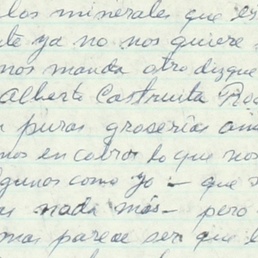 los minerales que es
te ya no nos quiere
nos manda otro dizque
Alberto Castruita Ro
puras groserías
nos en cobrar lo que nos
lgunos como yo - que
nada más - pero
mas parece ser que l